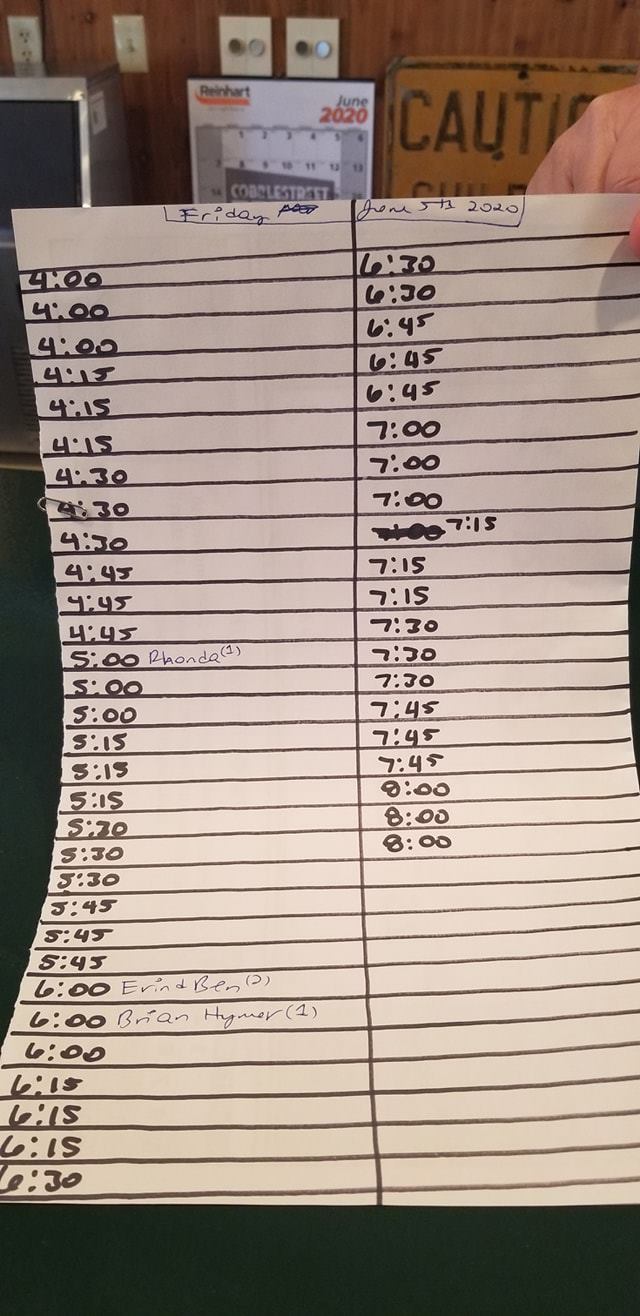 Reinhart
June
2020
1 2 3 4 5 6
7 8 9 10 11 12 13
14 COBBLESTREET
CAUTI
Friday June 5th 2020
4:00
4:00
4:00
4:15
4:15
4:15
4:30
4:30
4:30
4:45
4:45
4:45
5:00 Rhonda (1)
5:00
5:00
5:15
5:15
5:15
5:30
5:30
5:30
5:45
5:45
5:45
6:00 Erin & Ben (2)
6:00 Brian Hymer (1)
6:00
6:15
6:15
6:15
6:30
6:30
6:30
6:45
6:45
6:45
7:00
7:00
7:00
7:15
7:15
7:15
7:30
7:30
7:30
7:45
7:45
7:45
8:00
8:00
8:00